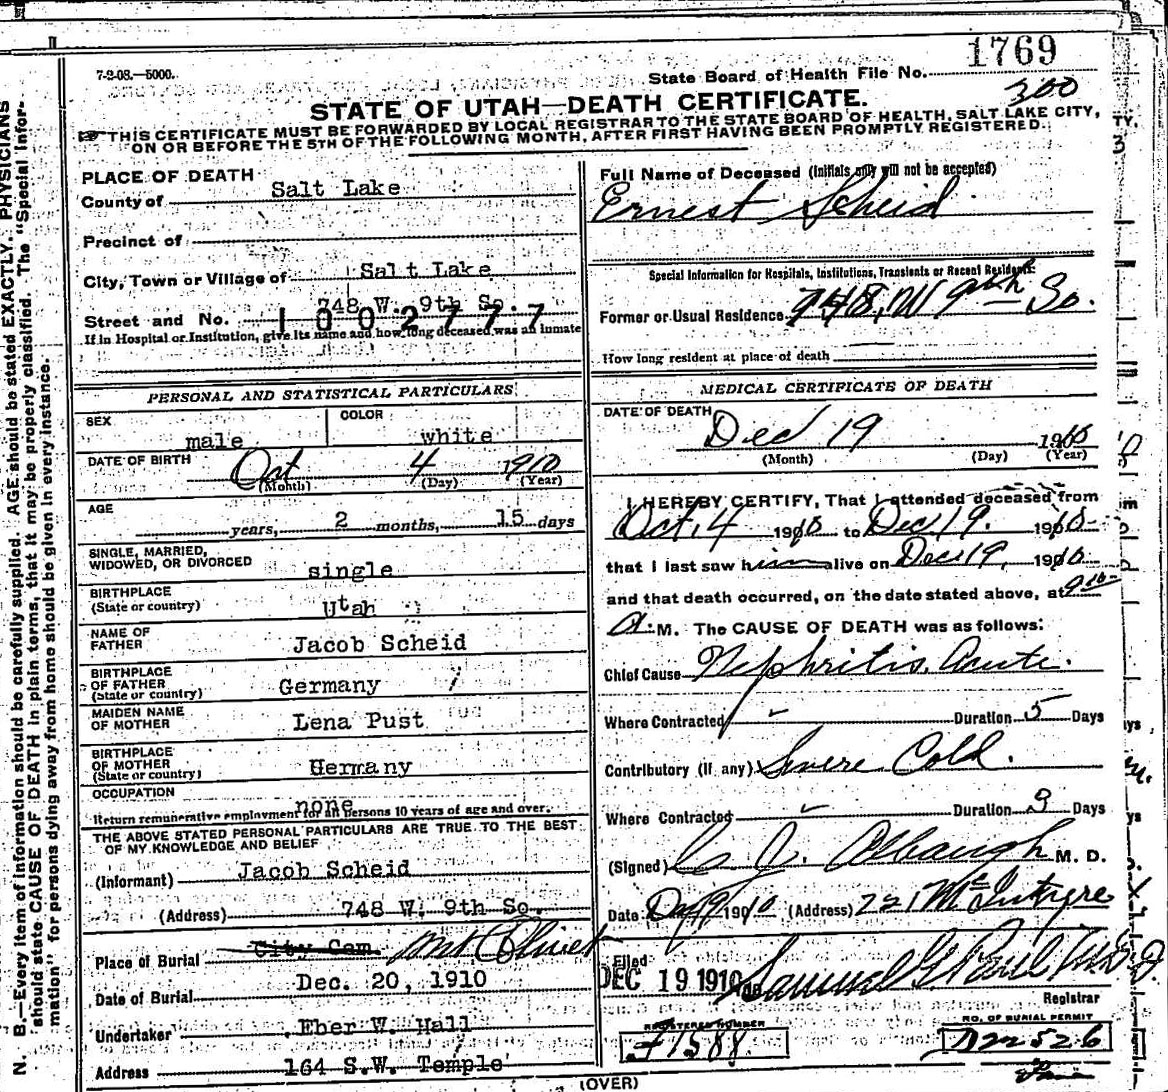 7-2-08.—5000.
State Board of Health File No. 1769
300
STATE OF UTAH—DEATH CERTIFICATE.
THIS CERTIFICATE MUST BE FORWARDED BY LOCAL REGISTRAR TO THE STATE BOARD OF HEALTH, SALT LAKE CITY,
ON OR BEFORE THE 5TH OF THE FOLLOWING MONTH, AFTER FIRST HAVING BEEN PROMPTLY REGISTERED.
N. B.—Every item of information should be carefully supplied. AGE should be stated EXACTLY. PHYSICIANS
should state CAUSE OF DEATH in plain terms, that it may be properly classified. The "Special Infor-
mation" for persons dying away from home should be given in every instance.
PLACE OF DEATH
County of Salt Lake
Precinct of
City, Town or Village of Salt Lake
Street and No. 748 W. 9th So.
1002777
If in Hospital or Institution, give its name and how long deceased was an inmate
PERSONAL AND STATISTICAL PARTICULARS
SEX male COLOR white
DATE OF BIRTH Oct 4 1910
(Month) (Day) (Year)
AGE years, 2 months, 15 days
SINGLE, MARRIED,
WIDOWED, OR DIVORCED single
BIRTHPLACE
(State or country) Utah
NAME OF
FATHER Jacob Scheid
BIRTHPLACE
OF FATHER
(State or country) Germany
MAIDEN NAME
OF MOTHER Lena Pust
BIRTHPLACE
OF MOTHER
(State or country) Germany
OCCUPATION none
Return remunerative employment for all persons 10 years of age and over.
THE ABOVE STATED PERSONAL PARTICULARS ARE TRUE TO THE BEST
OF MY KNOWLEDGE AND BELIEF
(Informant) Jacob Scheid
(Address) 748 W. 9th So.
Place of Burial City Cem. Mt Olivet
Date of Burial Dec. 20, 1910
Undertaker Eber W. Hall
Address 164 S.W. Temple
Full Name of Deceased (Initials only will not be accepted)
Ernest Scheid
Special Information for Hospitals, Institutions, Transients or Recent Residents:
Former or Usual Residence 748, W 9th So.
How long resident at place of death
MEDICAL CERTIFICATE OF DEATH
DATE OF DEATH Dec 19 1910
(Month) (Day) (Year)
I HEREBY CERTIFY, That I attended deceased from
Oct, 4 1910 to Dec 19. 1910
that I last saw him alive on Dec 19, 1910
and that death occurred, on the date stated above, at 9 10
A. M. The CAUSE OF DEATH was as follows:
Chief Cause Nephritis, Acute.
Where Contracted Duration 5 Days
Contributory (if any) Severe Cold.
Where Contracted Duration 9 Days
(Signed) Albaugh M. D.
Date 1910 (Address) 721 McIntyre
Filed DEC 19 1910 Samuel G Paul M.D.
Registrar
REGISTERED NUMBER
NO. OF BURIAL PERMIT
D22526
(OVER)